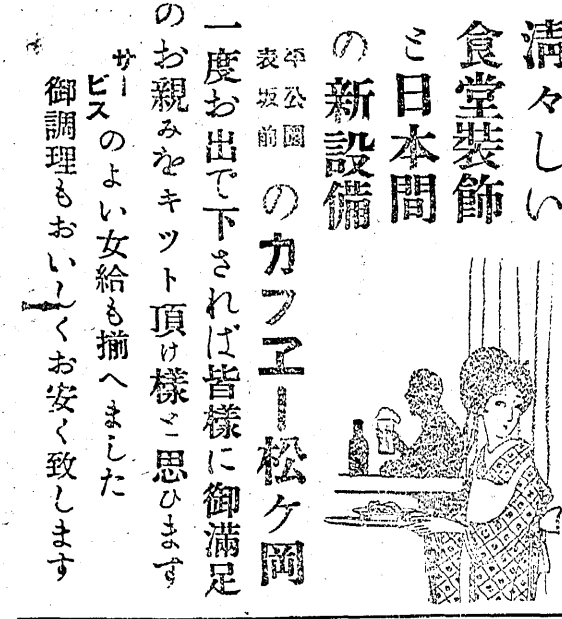 清々しい
食堂裝飾
と日本間
の新設備
平公園
表坂前
のカフヱー松ケ岡
一度お出で下されば皆様に御満足
のお親みをキツト頂け様と思ひます
サービスのよい女給も揃へました
御調理もおいしくお安く致します